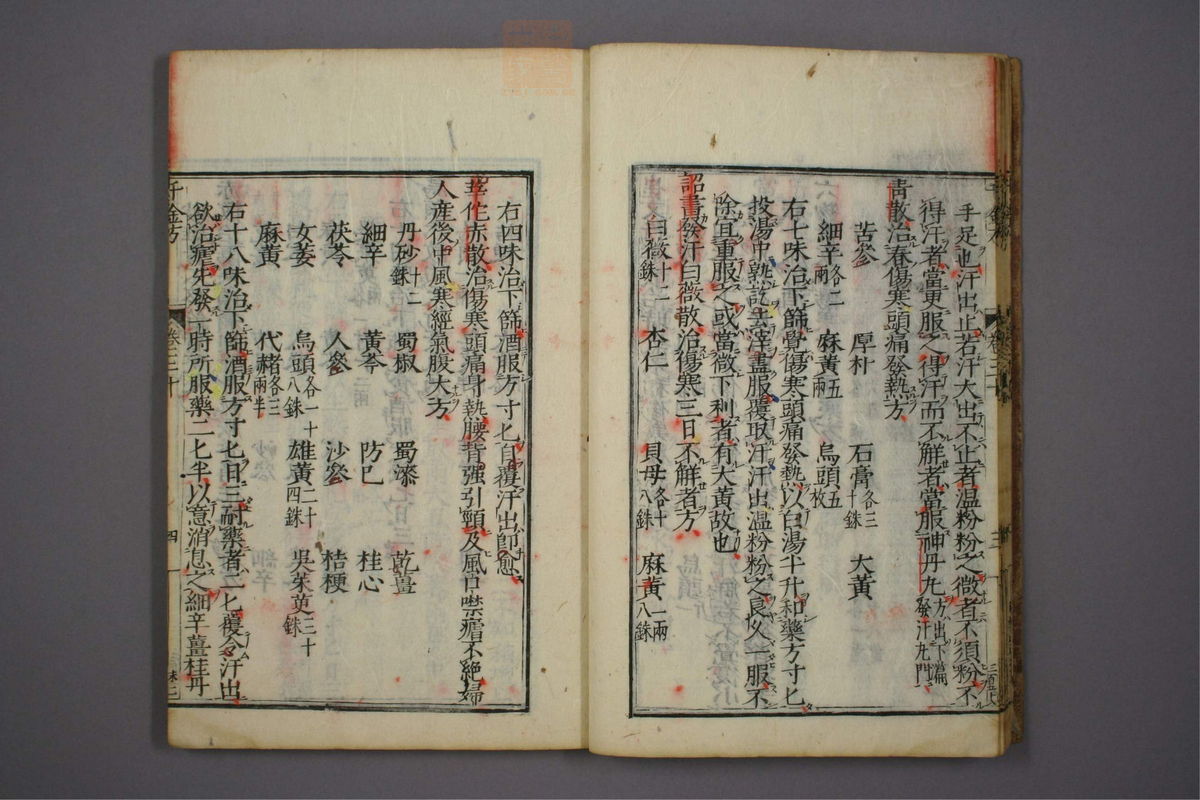 手足也汗出止若汗大出不止者温粉粉之微者不須粉不
得汗者當更服之得汗而不解者當服神丹丸方出下篇發汗丸門
青散治春傷寒頭痛發熱方
苦參 厚朴 石膏各三十銖 大黃
細辛各二兩 麻黃五兩 烏頭五枚
右七味治下篩覺傷寒頭痛發熱以白湯半升和藥方寸匕
投湯中熟訖去滓盡服覆取汗汗出温粉粉之良久一服不
除宜重服之或當微下利者有大黃故也
詔書發汗白薇散治傷寒三日不解者方
白薇十二銖 杏仁 貝母各十八銖 麻黃一兩八銖
右四味治下篩酒服方寸匕自覆汗出即愈
華佗赤散治傷寒頭痛身熱腰背強引頸及風口噤瘧不絶婦
人產後中風寒經氣腹大方
丹砂十二銖 蜀椒 蜀漆 乾薑
細辛 黃芩 防己 桂心
茯苓 人參 沙參 桔梗
女萎 烏頭各一十八銖 雄黃二十四銖 吳茱萸三十銖
麻黃 代赭各二兩半
右十八味治下篩酒服方寸匕日三耐藥者二匕覆令汗出
欲治瘧先發一時所服藥二匕半以意消息之細辛薑桂丹
千金方 卷三十 四